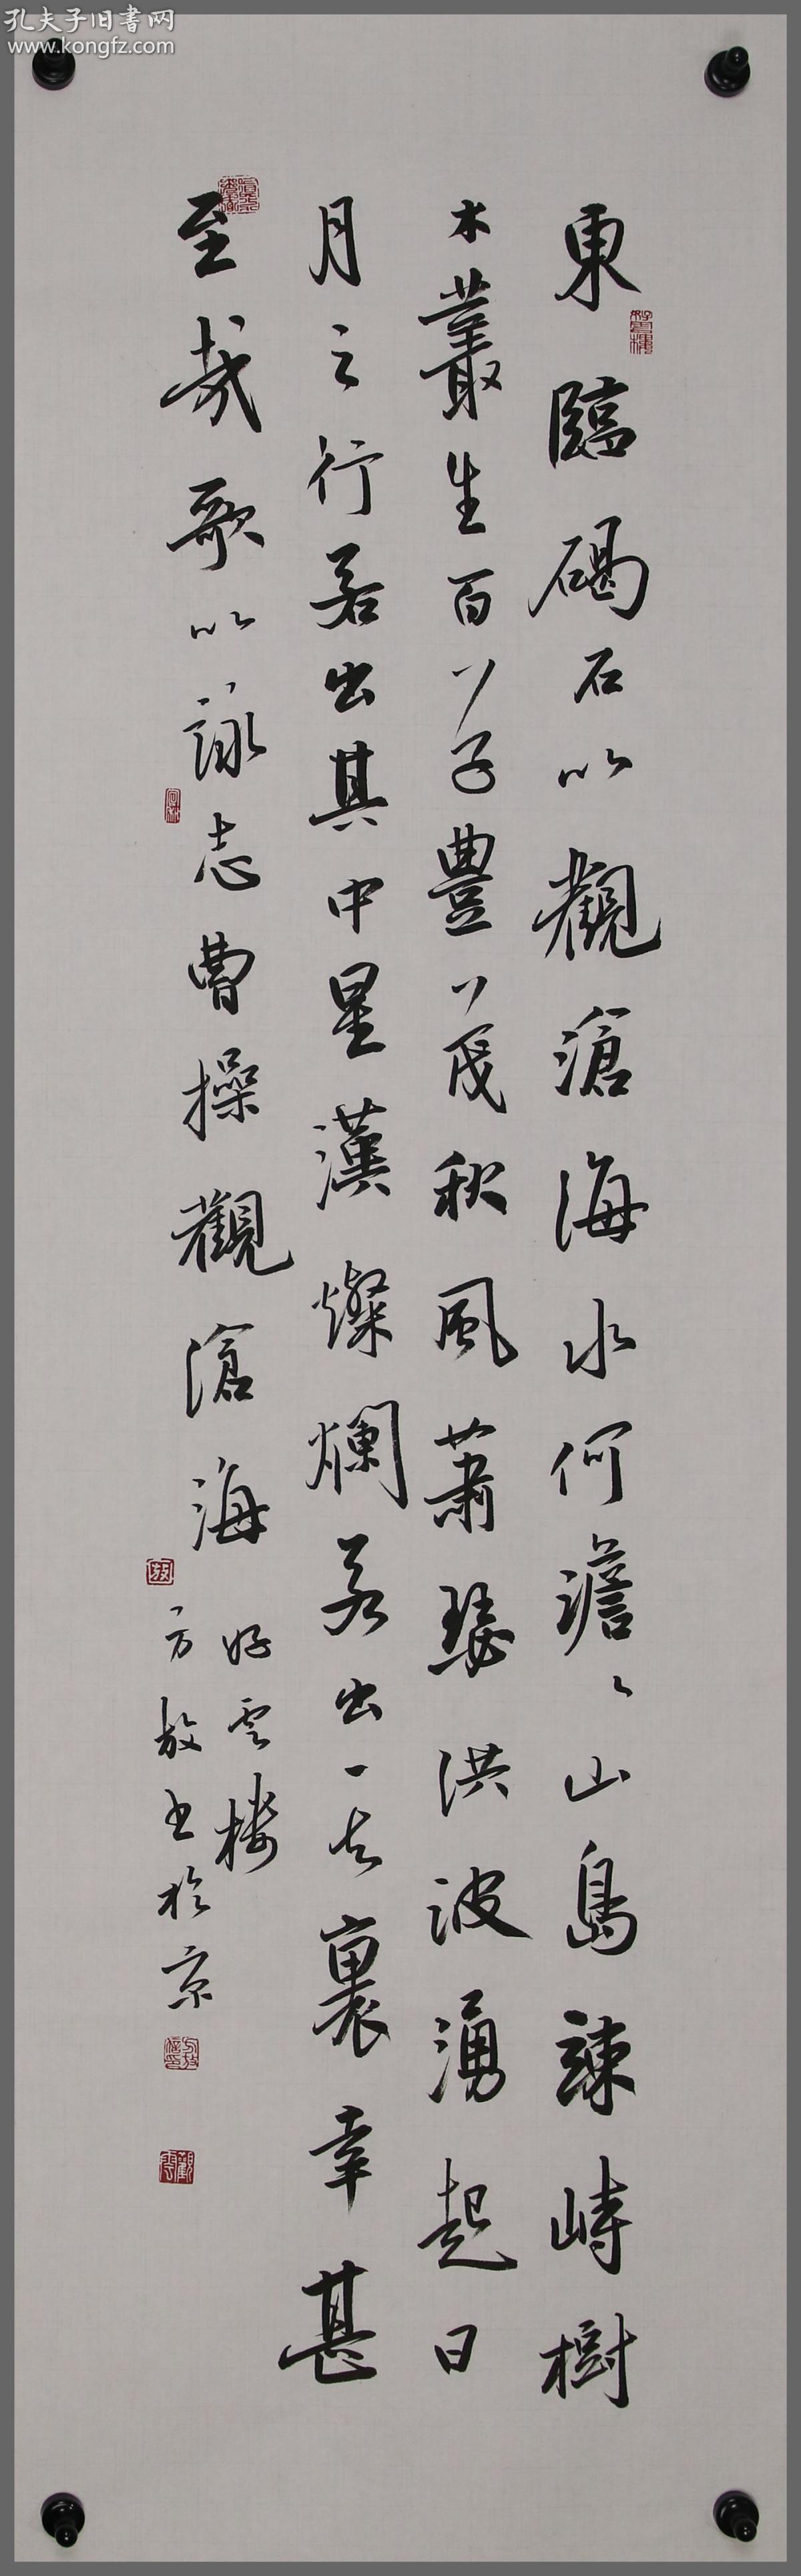 孔夫子旧書网
www.kongfz.com
東臨碣石以觀滄海水何澹〻山島竦峙樹
木叢生百草豐茂秋風蕭瑟洪波湧起日
月之行若出其中星漢燦爛若出其裏幸甚
至哉歌以詠志曹操觀滄海
好雲楼
方放书於京
好雲樓